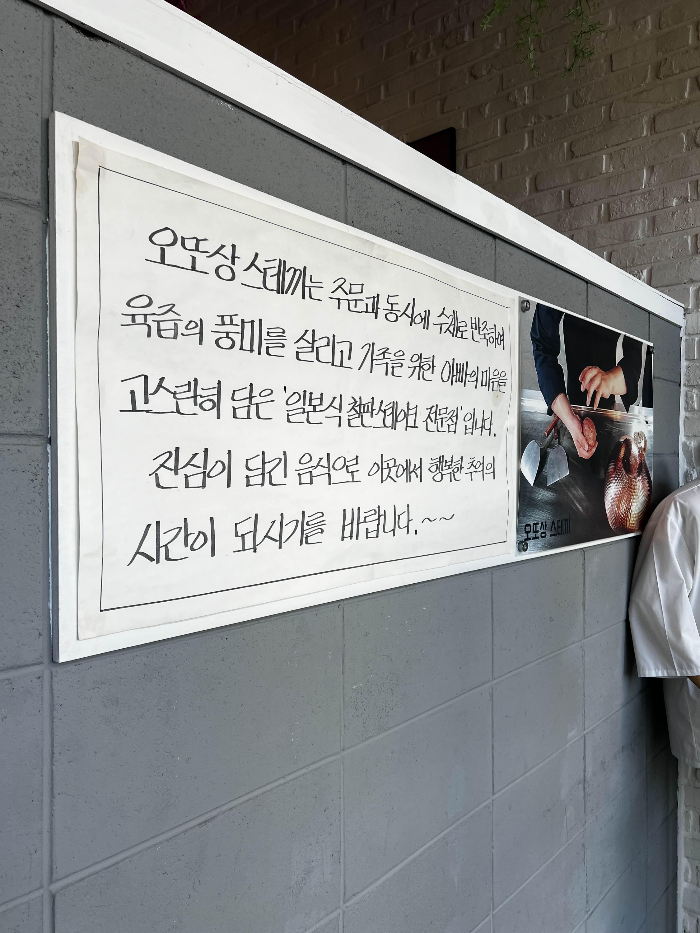 오또상 스테끼는 주문과 동시에 수제로 반죽하여
육즙의 풍미를 살리고 가족을 위한 아빠의 마음을
고스란히 담은 '일본식 철판스테이크 전문점'입니다.
진심이 담긴 음식으로 이곳에서 행복한 추억의
시간이 되시기를 바랍니다.~~
오또상 스테끼